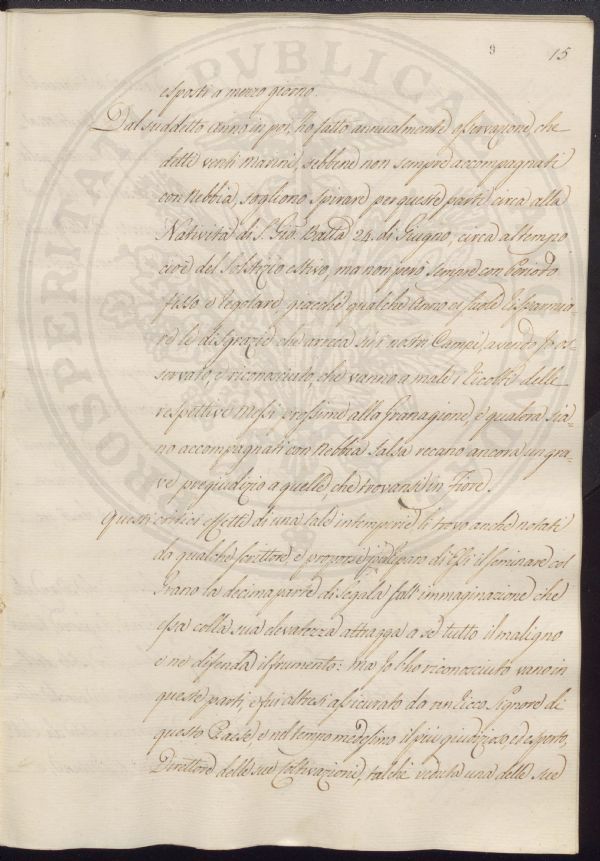 9 15
esposti a mezzo giorno.
Dal suddetto anno in poi, ho fatto annualmente osservazione, che
detti venti Marini, sebbene non sempre accompagnati
con Nebbia, sogliono spirare per queste parti circa alla
Natività di S. Gio. Batta 24. di Giugno, circa al tempo
cioè del Solstizio estivo, ma non però sempre con Periodo
fisso e regolare, giacchè qualche Anno ci suole risparmia-
re le disgrazie che arreca su i nostri Campi, avendo Io os-
servato, e riconosciuto che vanno a male i Ricolti delle
respettive Messi prossime alla granagione, e qualora sia-
no accompagnati con Nebbia salsa recano ancora un gra-
ve pregiudizio a quelle che trovansi in Fiore.
Questi critici effetti di una tale intemperie li trovo anche notati
da qualche scrittore, e proporsi riparo di Essi il seminare col
Grano la decima parte di segala sull'immaginazione che
essa colla sua elevatezza attragga a sè tutto il maligno
e ne difenda il frumento: ma Io l'ho riconosciuto vano in
queste parti, e fui altresì assicurato da un ricco Signore di
questo Paese, e nel tempo medesimo il più giudizioso, ed esperto,
Direttore delle sue Coltivazioni, talchè veduta una delle sue
PROSPERITATI PUBLICAE